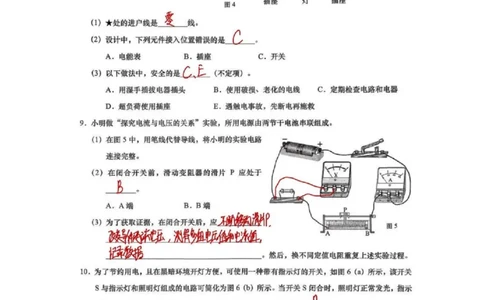 插座 灯 插座
图4
(1) ★处的进户线是 零 线。
(2) 设计中，下列元件接入位置错误的是 C 。
A. 电能表 B. 插座 C. 开关
(3) 以下做法中，安全的是 C、E （不定项）。
A. 用湿手插拔电器插头 B. 使用破损、老化的电线 C. 定期检查电路和电器
D. 超负荷使用插座 E. 遇触电事故，先断电再施救
9. 小明做“探究电流与电压的关系”实验，所用电源由两节干电池串联组成。
(1) 在图5中，用笔线代替导线，将小明的实验电路
连接完整。
(2) 在闭合开关前，滑动变阻器的滑片 P 应处于
B 。
A. A端 B. B端
(3) 为了获取证据，在闭合开关后，应
记录数据 。然后，换不同定值电阻重复上述实验过程。
P
A B
图5
10. 为了节约用电，且在黑暗环境开灯方便，可使用一种带有指示灯的开关，如图6（a）所示，该开关
S与指示灯和照明灯组成的电路可简化为图6（b）所示。当开关S闭合时，照明灯正常发光，指示